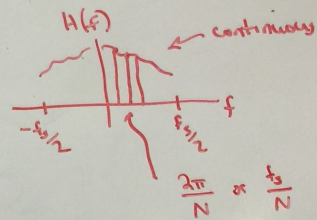 H(f)
continuous
f
-fs/2
fs/2
2π/N or fs/N